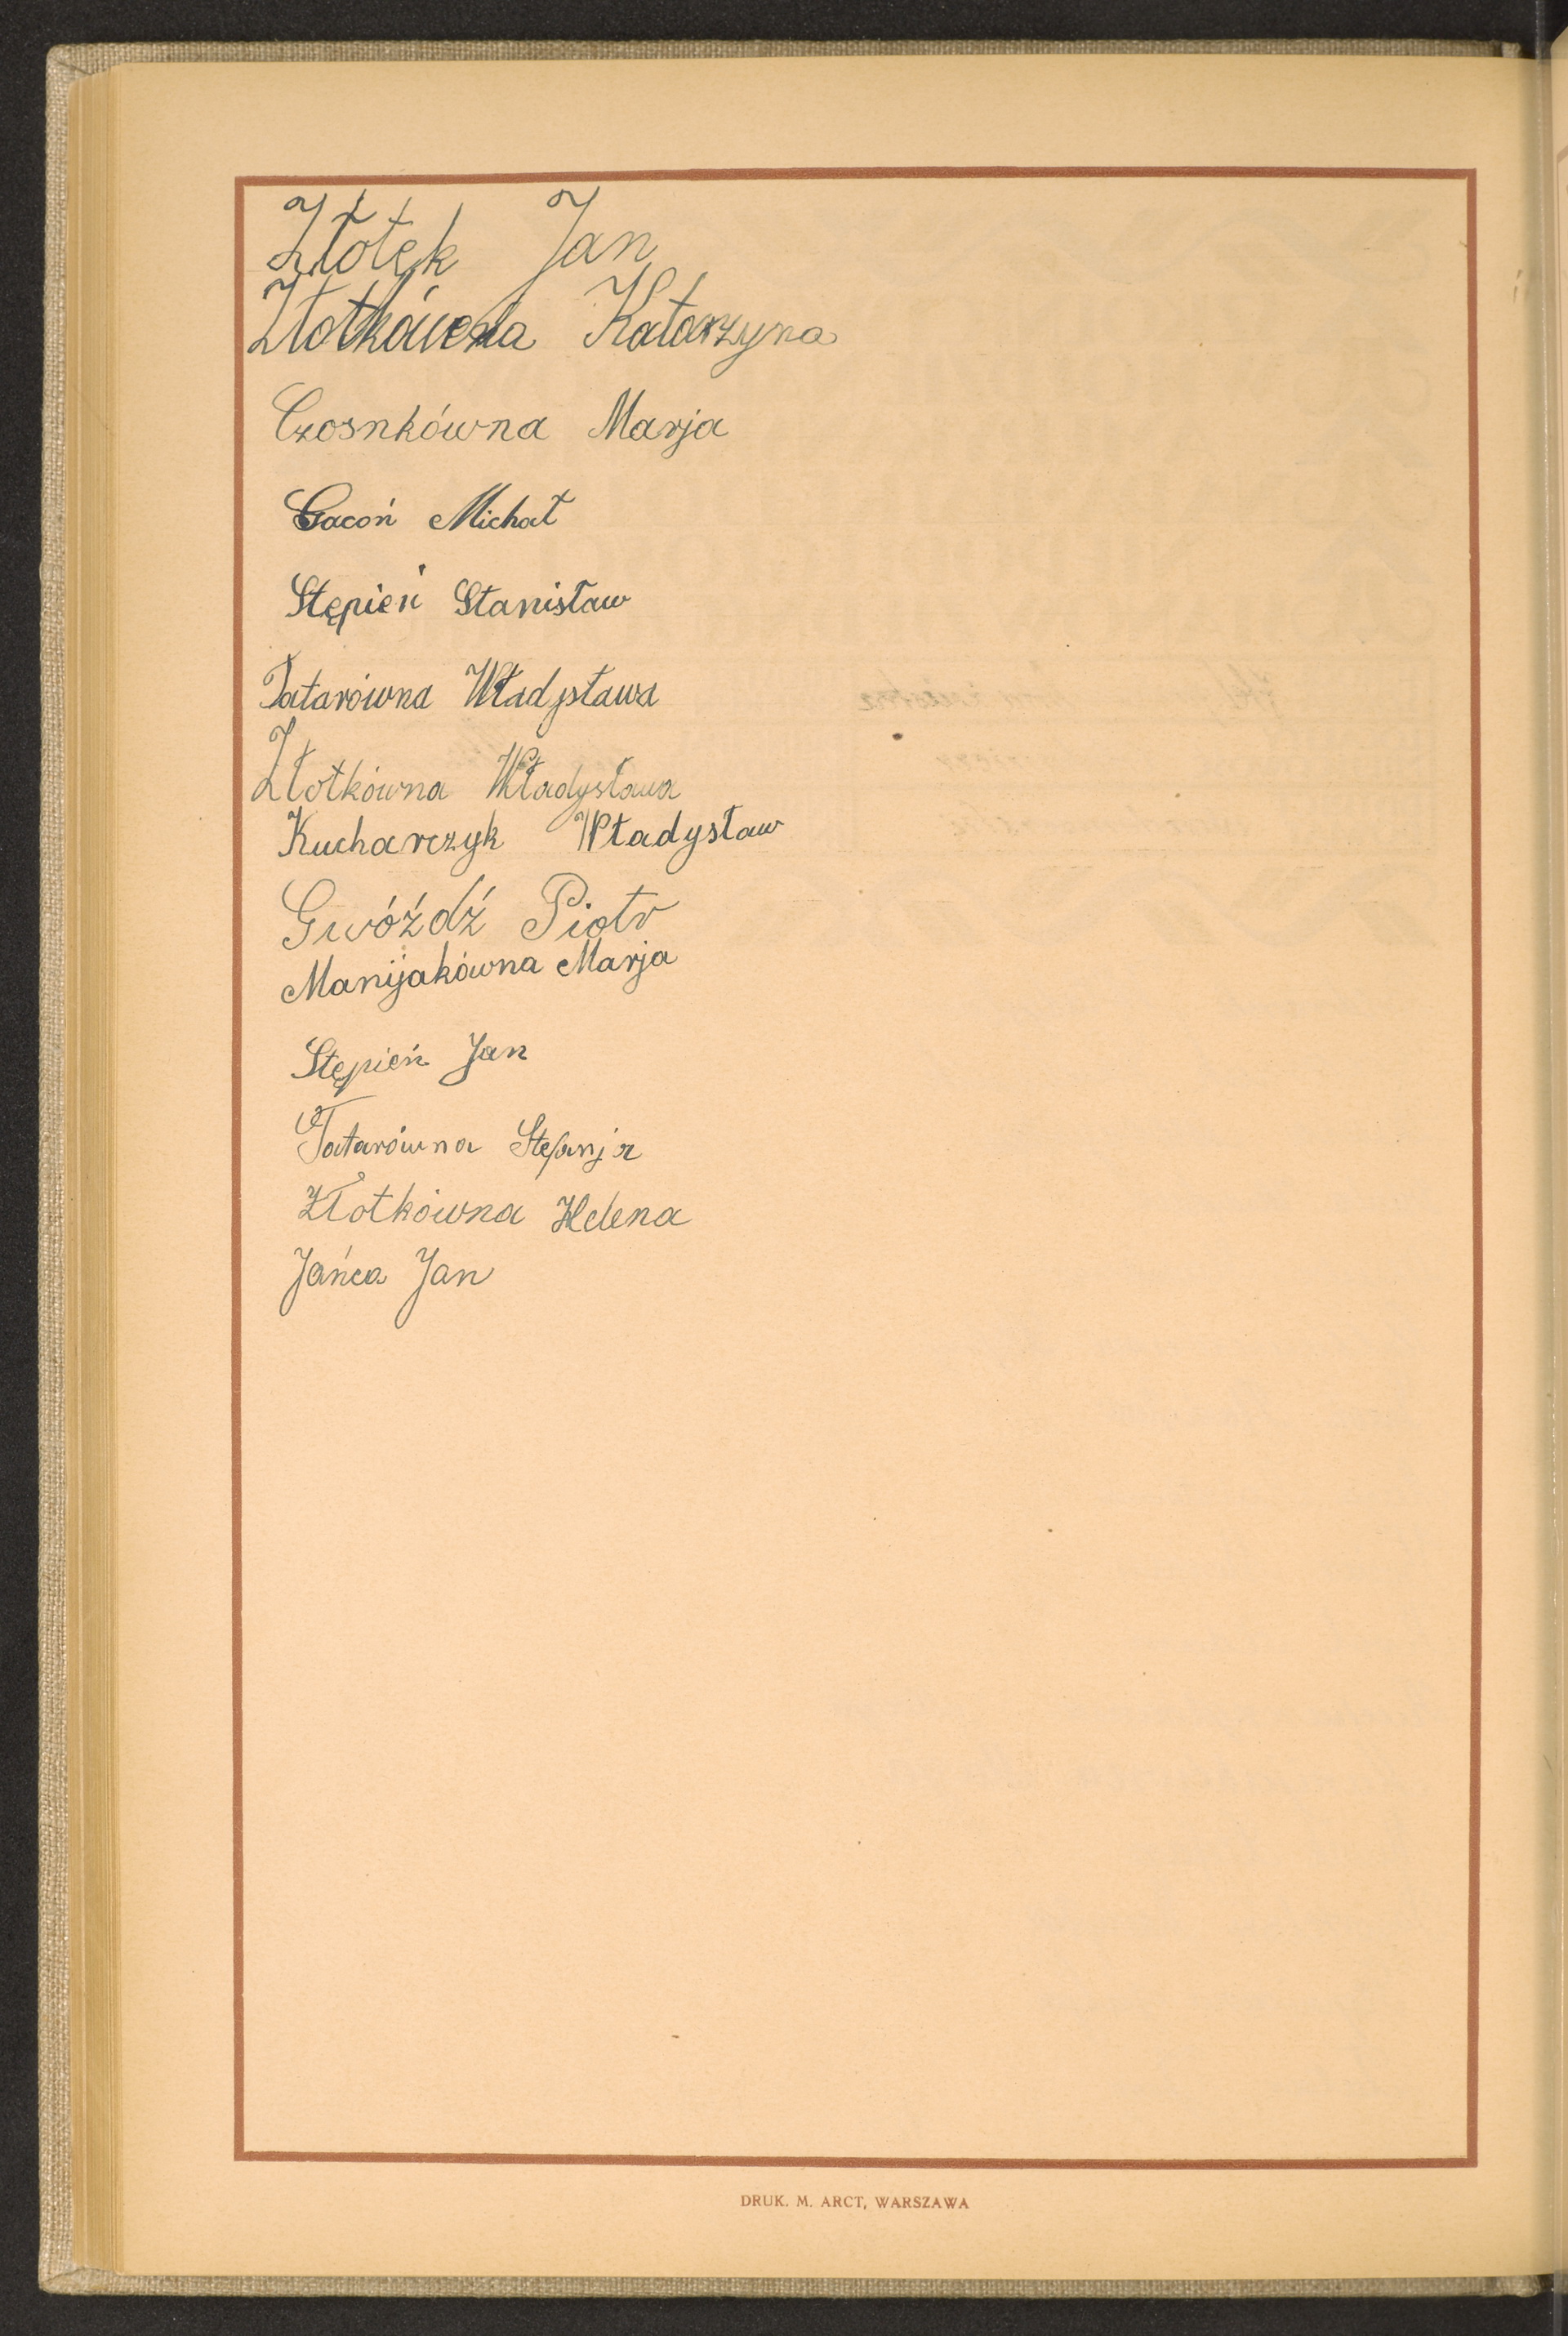 Złotek Jan
Złotkówna Katarzyna
Czosnkówna Marja
Gacoń Michał
Stępień Stanisław
Tatarówna Władysława
Złotkówna Władysława
Kucharczyk Władysław
Gwóźdź Piotr
Manijakówna Marja
Stępień Jan
Tatarówna Stefanja
Złotkówna Helena
Jańca Jan
DRUK. M. ARCT, WARSZAWA